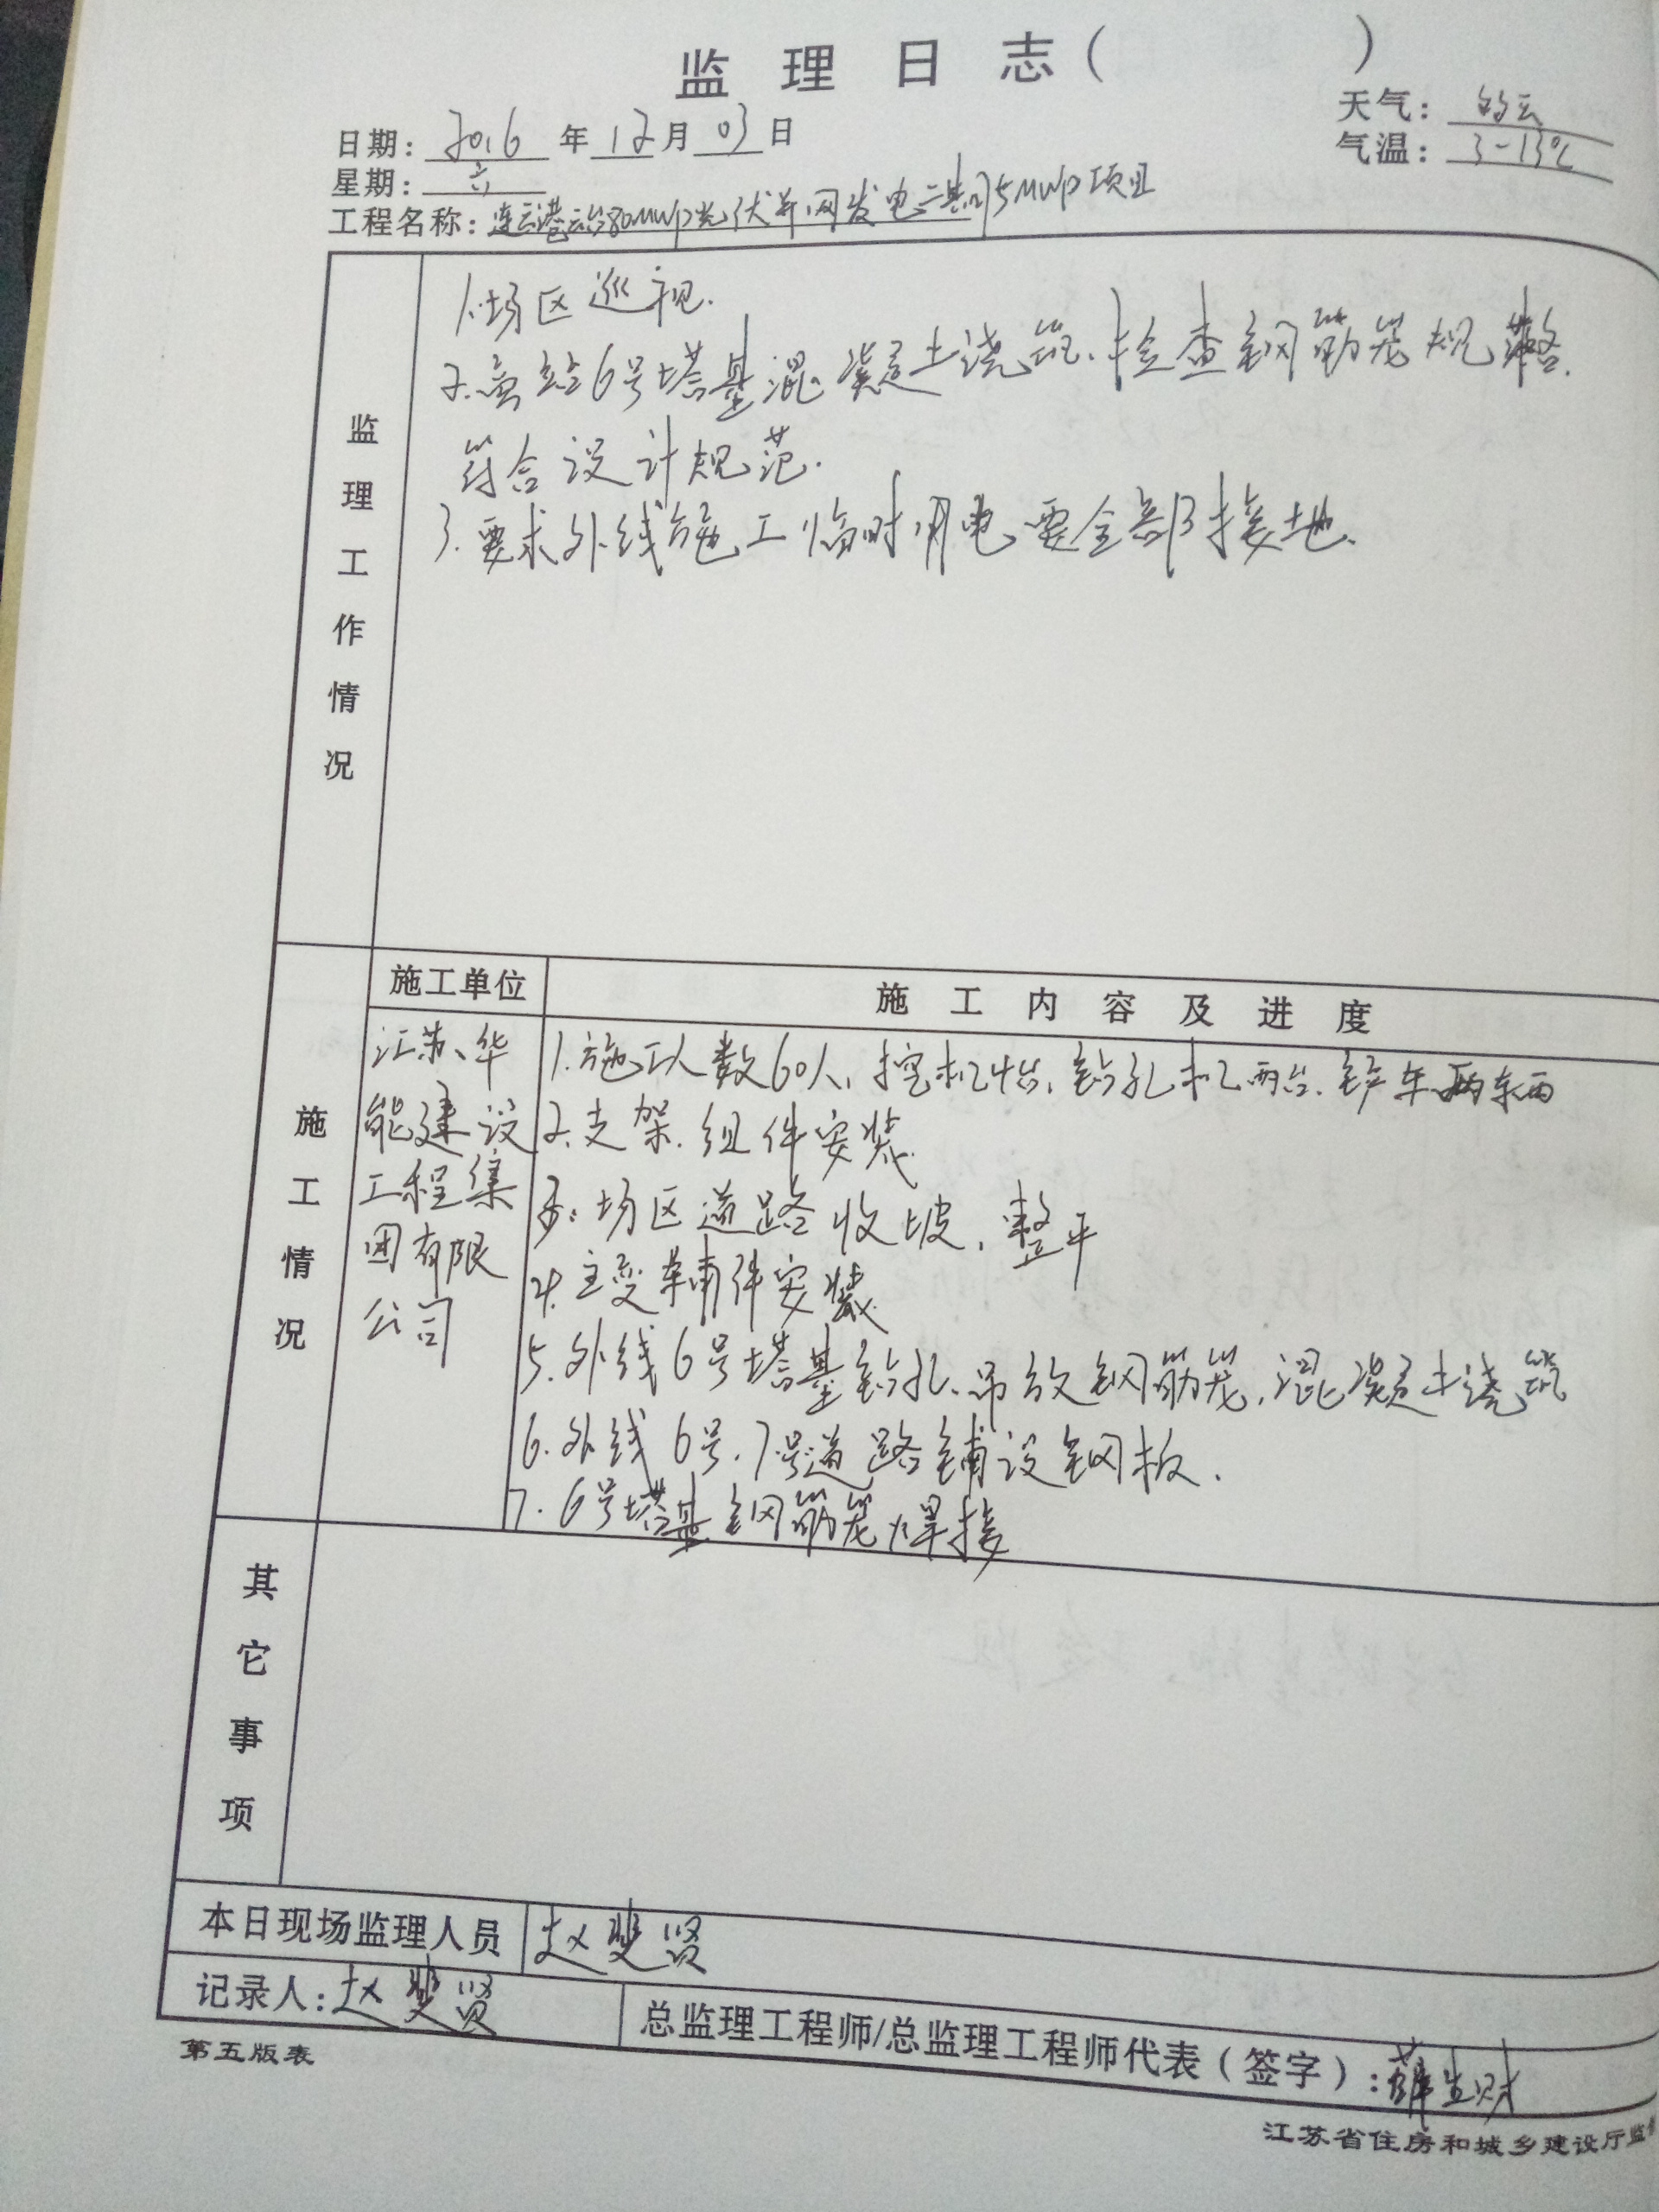 监理日志（ ）
天气：多云
日期：2016年12月03日
气温：3-13℃
星期：六
工程名称：连云港云台80MWP光伏并网发电二期75MWP项目
监理工作情况
1.场区巡视.
2.旁站6号塔基混凝土浇筑、检查钢筋笼规整.
符合设计规范.
3.要求外线施工临时用电要全部接地.
施工情况
施工单位
施工内容及进度
江苏华
能建设
工程集
团有限
公司
1.施工人数60人,挖机4台,钻孔机两台.铲车两辆
2.支架.组件安装
3:场区道路收坡、整平
4.主变辅件安装
5.外线6号塔基钻孔、吊放钢筋笼,混凝土浇筑
6.外线6号.7号道路铺设钢板.
7.6号塔基钢筋笼焊接
其它事项
本日现场监理人员 赵斐贤
记录人:赵斐贤
总监理工程师/总监理工程师代表（签字）:薛生财
第五版表
江苏省住房和城乡建设厅监